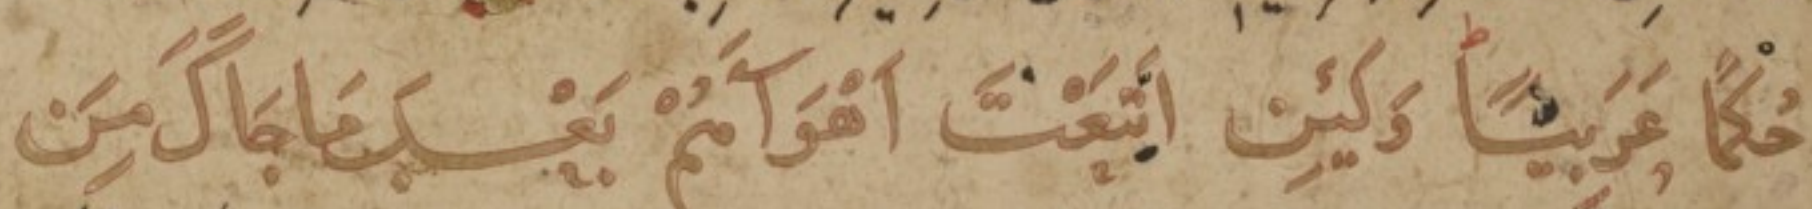 حُكْمًا عَرَبِيًّا ط وَلَئِنِ اتَّبَعْتَ اَهْوَآءَهُمْ بَعْدَ مَا جَاكَ مِنَ